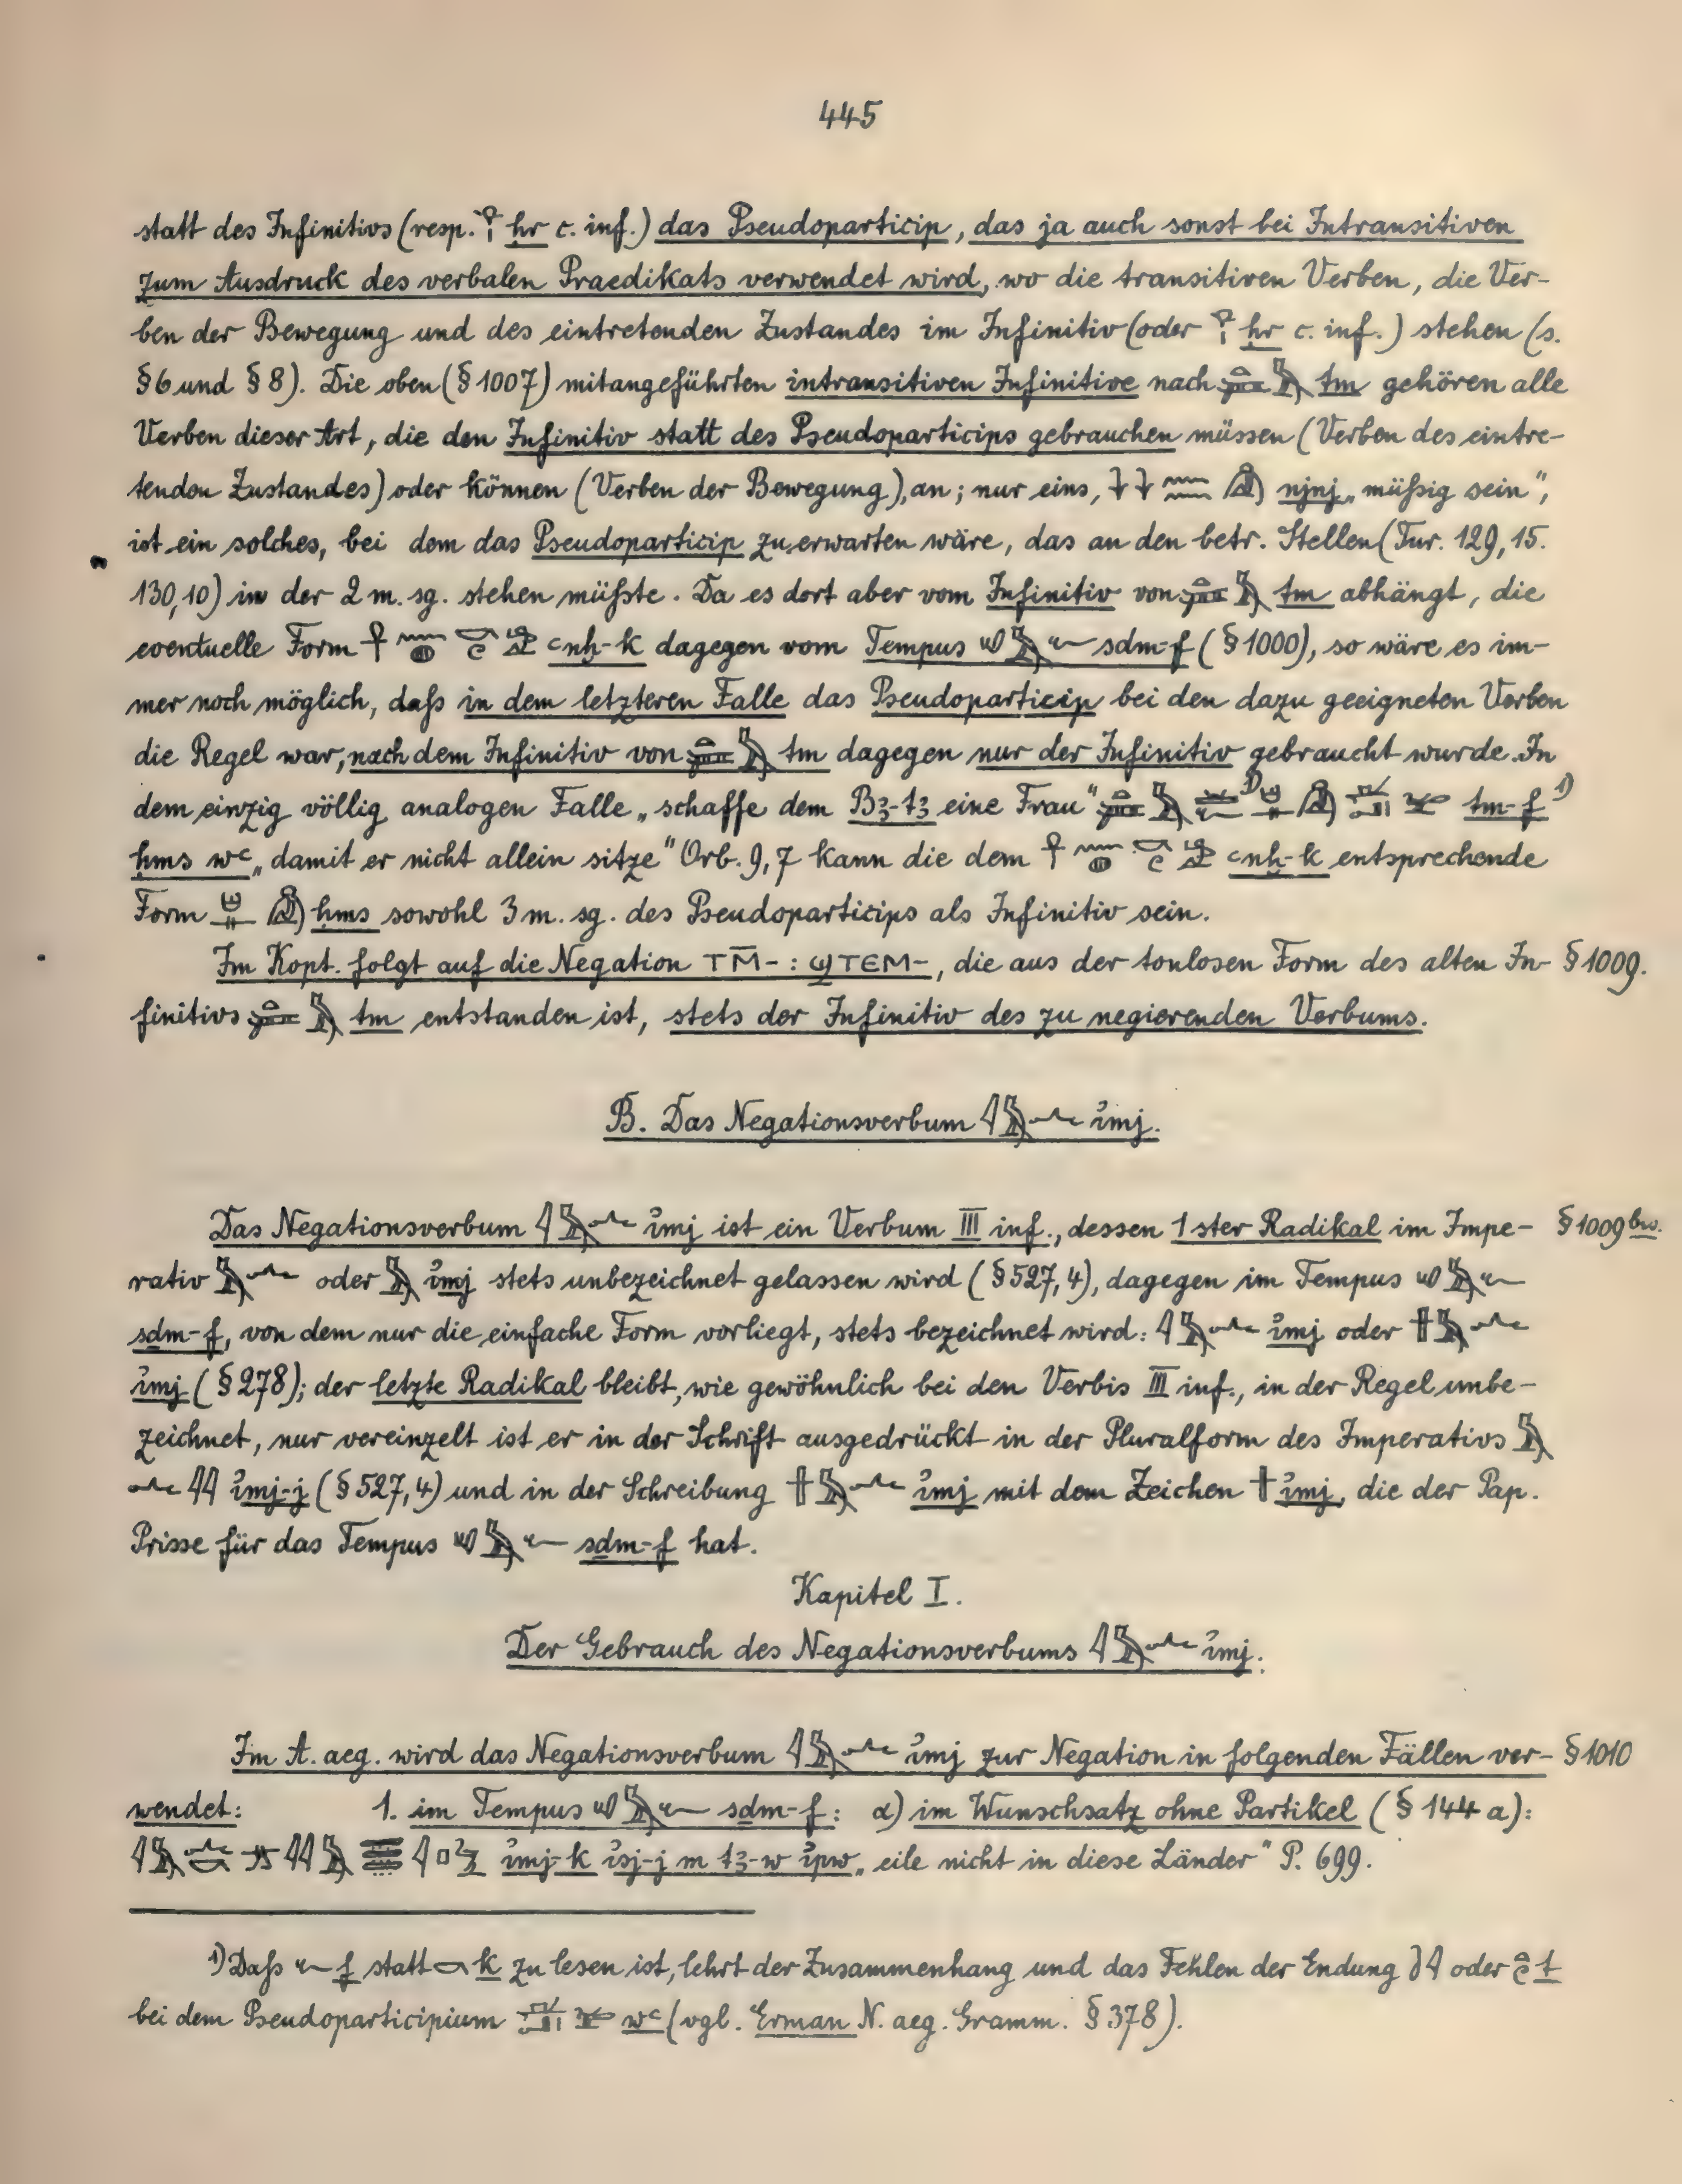 445
statt des Infinitivs (resp. 𓁷𓏤 ḥr c. inf.) das Pseudoparticip, das ja auch sonst bei Intransitiven
zum Ausdruck des verbalen Praedikats verwendet wird, wo die transitiven Verben, die Ver-
ben der Bewegung und des eintretenden Zustandes im Infinitiv (oder 𓁷𓏤 ḥr c. inf.) stehen (s.
§ 6 und § 8). Die oben (§ 1007) mitangeführten intransitiven Infinitive nach 𓏏𓍃𓅓 tm gehören alle
Verben dieser Art, die den Infinitiv statt des Pseudoparticips gebrauchen müssen (Verben des eintre-
tenden Zustandes) oder können (Verben der Bewegung), an; nur eins, njnj „müßig sein",
ist ein solches, bei dem das Pseudoparticip zu erwarten wäre, das an den betr. Stellen (Tur. 129, 15.
130, 10) in der 2 m. sg. stehen müßte. Da es dort aber vom Infinitiv von 𓏏𓍃𓅓 tm abhängt, die
eventuelle Form ꜥnḫ-k dagegen vom Tempus sdm-f (§ 1000), so wäre es im-
mer noch möglich, daß in dem letzteren Falle das Pseudoparticip bei den dazu geeigneten Verben
die Regel war, nach dem Infinitiv von 𓏏𓍃𓅓 tm dagegen nur der Infinitiv gebraucht wurde. In
dem einzig völlig analogen Falle „schaffe dem Bꜣ-tꜣ eine Frau" tm-f ¹⁾
ḥms wꜥ „damit er nicht allein sitze" Orb. 9, 7 kann die dem ꜥnḫ-k entsprechende
Form ḥms sowohl 3 m. sg. des Pseudoparticips als Infinitiv sein.
Im Kopt. folgt auf die Negation ⲧⲙ̄- : ϣⲧⲉⲙ-, die aus der tonlosen Form des alten In- § 1009.
finitivs 𓏏𓍃𓅓 tm entstanden ist, stets der Infinitiv des zu negierenden Verbums.
B. Das Negationsverbum 𓇋𓅓𓂜 ı͗mj.
Das Negationsverbum 𓇋𓅓𓂜 ı͗mj ist ein Verbum III inf., dessen 1ster Radikal im Impe- § 1009 bis.
rativ 𓅓𓂜 oder 𓅓 ı͗mj stets unbezeichnet gelassen wird (§ 527, 4), dagegen im Tempus 𓄔𓅓𓆑
sdm-f, von dem nur die einfache Form vorliegt, stets bezeichnet wird: 𓇋𓅓𓂜 ı͗mj oder 𓏶𓅓𓂜
ı͗mj (§ 278); der letzte Radikal bleibt, wie gewöhnlich bei den Verbis III inf., in der Regel unbe-
zeichnet, nur vereinzelt ist er in der Schrift ausgedrückt in der Pluralform des Imperativs 𓅓
𓂜𓇋𓇋 ı͗mj-j (§ 527, 4) und in der Schreibung 𓏶𓅓𓂜 ı͗mj mit dem Zeichen 𓏶 ı͗mj, die der Pap.
Prisse für das Tempus 𓄔𓅓𓆑 sdm-f hat.
Kapitel I.
Der Gebrauch des Negationsverbums 𓇋𓅓𓂜 ı͗mj.
Im A. aeg. wird das Negationsverbum 𓇋𓅓𓂜 ı͗mj zur Negation in folgenden Fällen ver- § 1010
wendet: 1. im Tempus 𓄔𓅓𓆑 sdm-f: α) im Wunschsatz ohne Partikel (§ 144 a):
ı͗mj-k ı͗sj-j m tꜣ-w ı͗pw „eile nicht in diese Länder" P. 699.
¹⁾ Daß 𓆑 f statt 𓎡 k zu lesen ist, lehrt der Zusammenhang und das Fehlen der Endung 𓎡𓇋 oder t
bei dem Pseudoparticipium wꜥ (vgl. Erman N. aeg. Gramm. § 378).